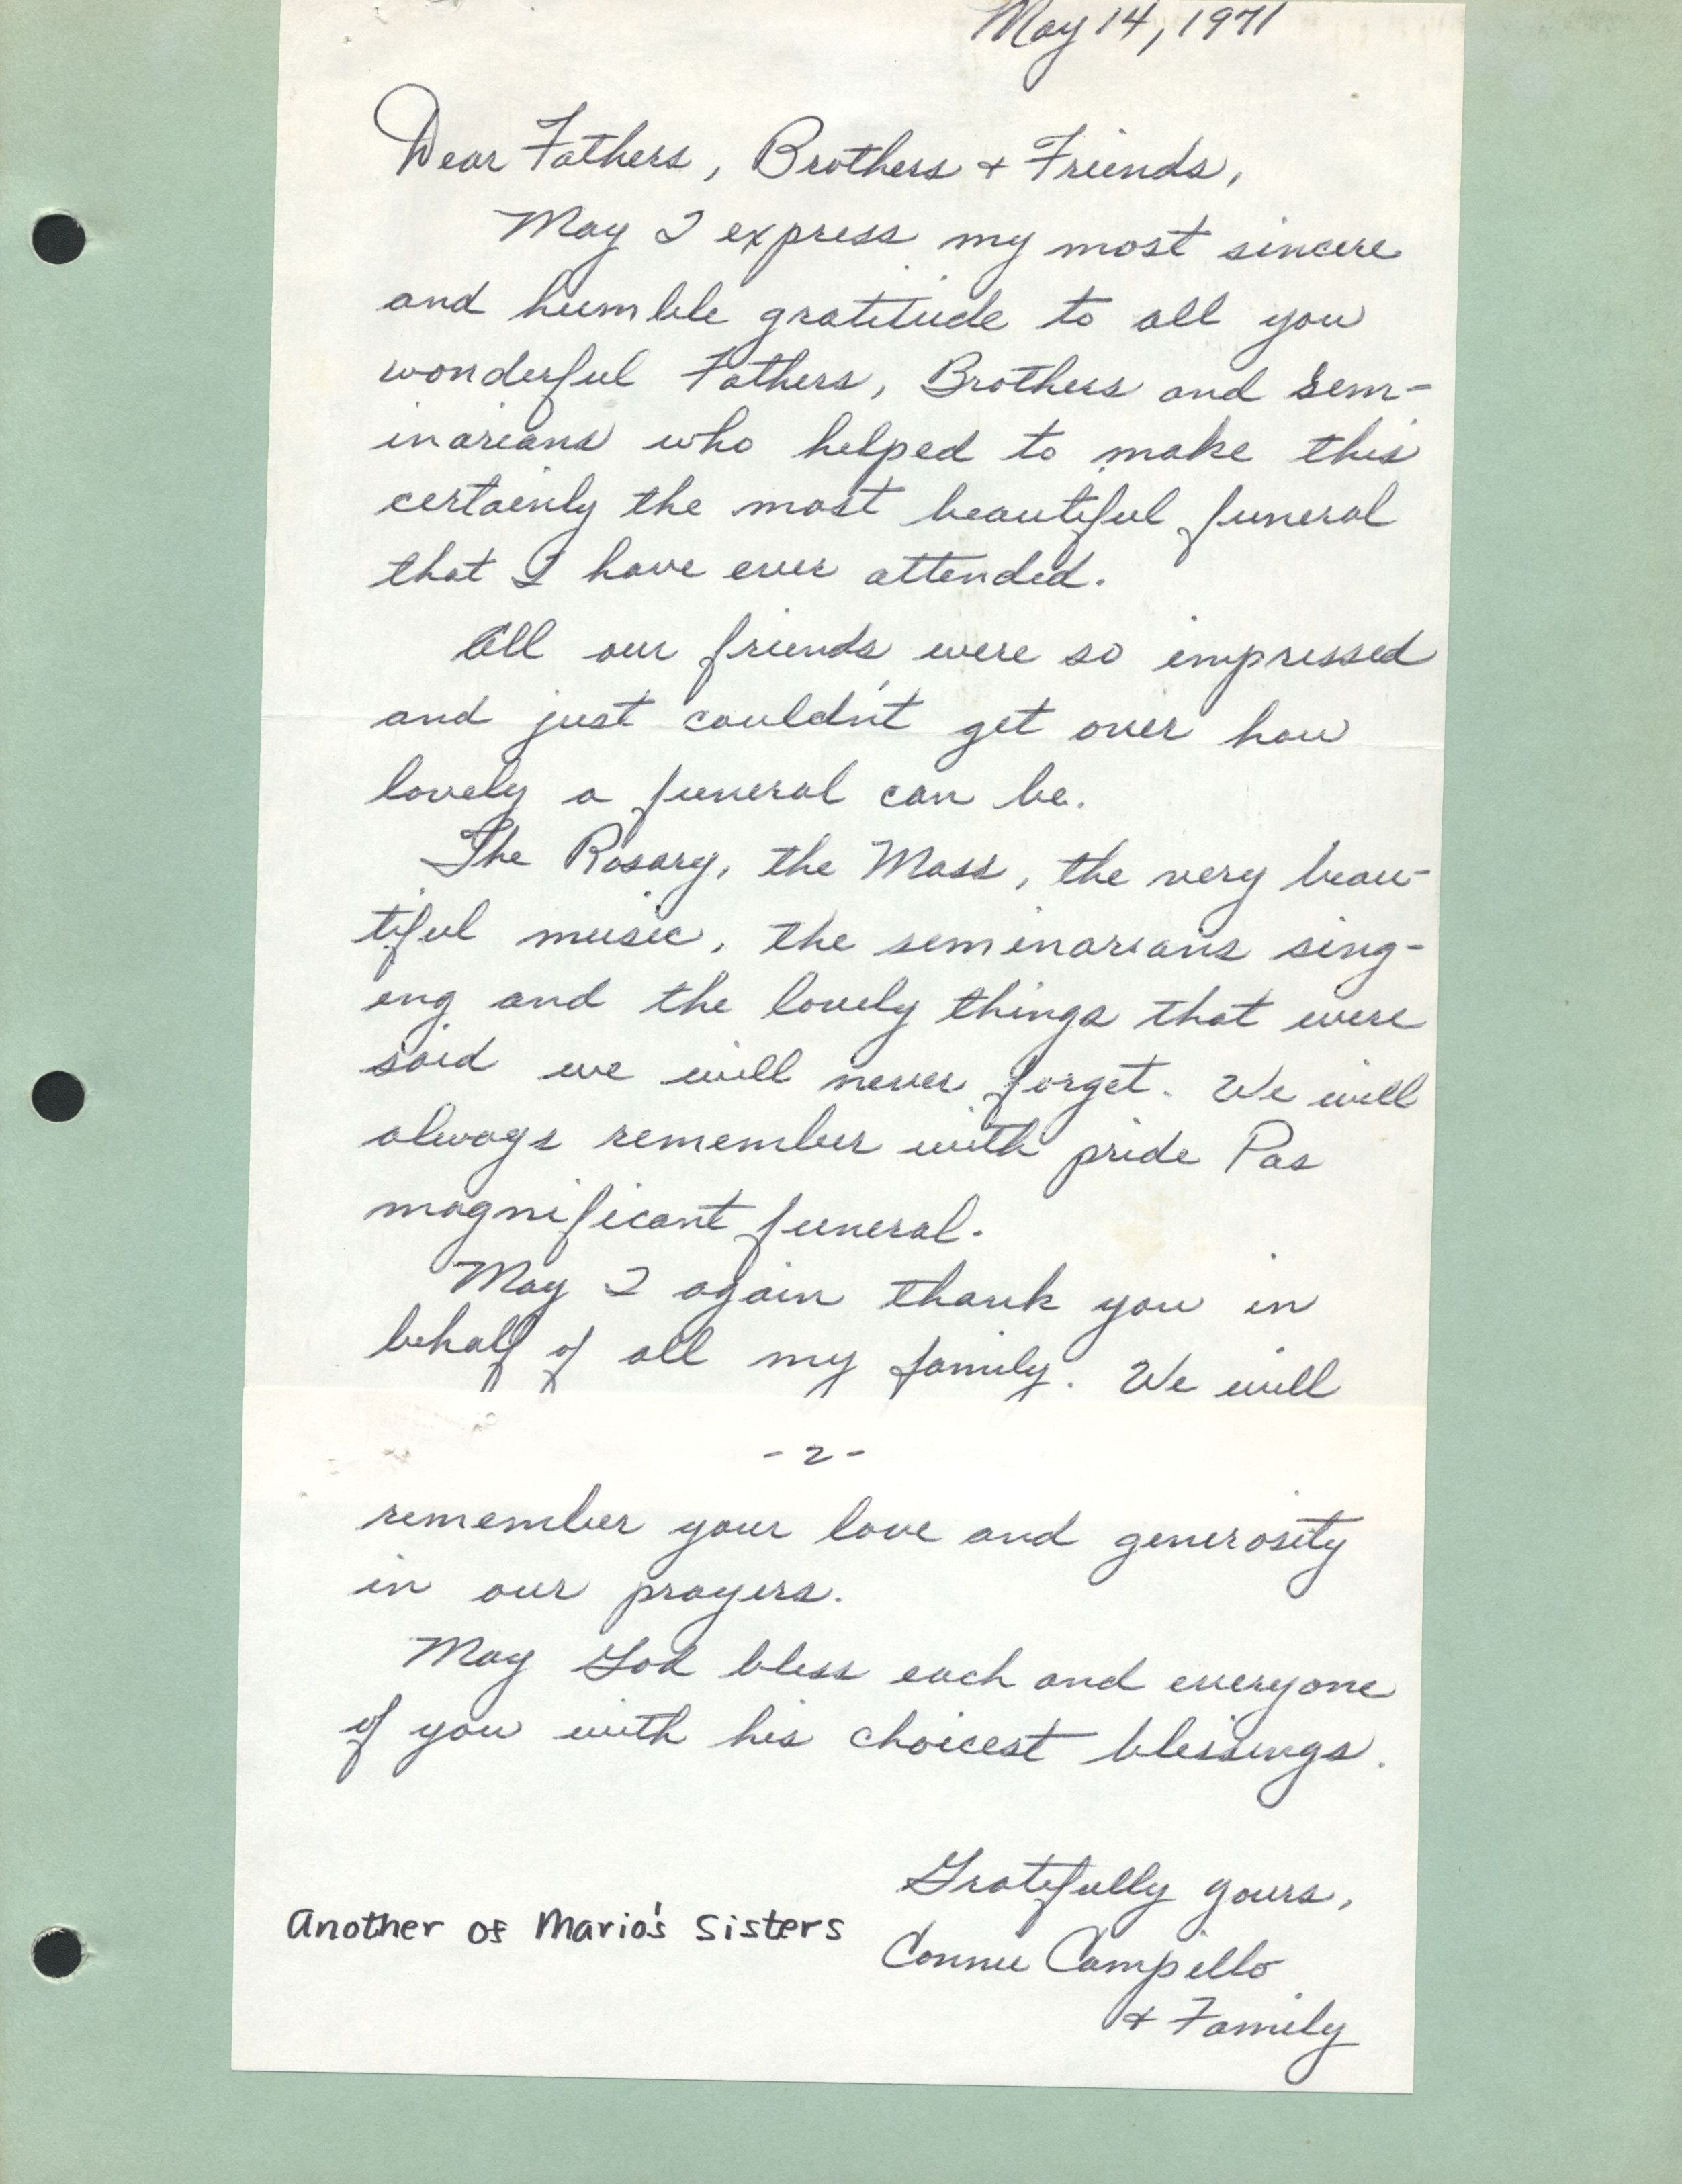 May 14, 1971
Dear Fathers, Brothers + Friends,
May I express my most sincere
and humble gratitude to all you
wonderful Fathers, Brothers and Sem-
inarians who helped to make this
certainly the most beautiful funeral
that I have ever attended.
All our friends were so impressed
and just couldn't get over how
lovely a funeral can be.
The Rosary, the Mass, the very beau-
tiful music, the seminarians sing-
ing and the lovely things that were
said we will never forget. We will
always remember with pride Pas
magnificant funeral.
May I again thank you in
behalf of all my family. We will
- 2 -
remember your love and generosity
in our prayers.
May God bless each and everyone
of you with his choicest blessings.
Gratefully yours,
Another of Mario's Sisters
Connie Campillo
+ Family